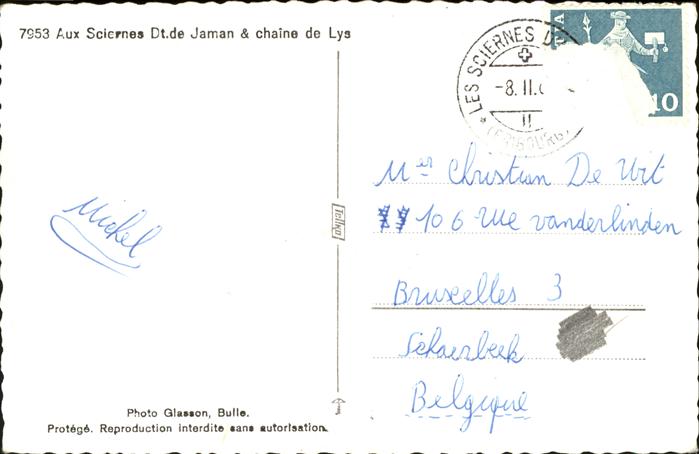 7953 Aux Sciernes Dt.de Jaman & chaîne de Lys
LES SCIERNES D
-8. II.
10
Mer Christian De Wit
106 Rue vanderlinden
Bruxelles 3
Schaerbeek
Belgique
Michel
Photo Glasson, Bulle.
Protégé. Reproduction interdite sans autorisation.